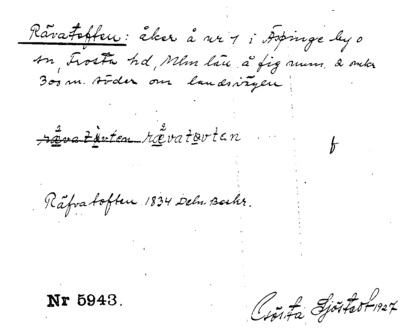 Rävatoften: åker å nr 1 i Äspinge by o
sn, Frosta hd, Mlm län. å fig num. 2 cirka
300 m. söder om landsvägen
rævatåvten rævatåvten f
Räfvatoften 1834 Deln. Beskr.
Nr 5943.
Gösta Sjöstedt 1927